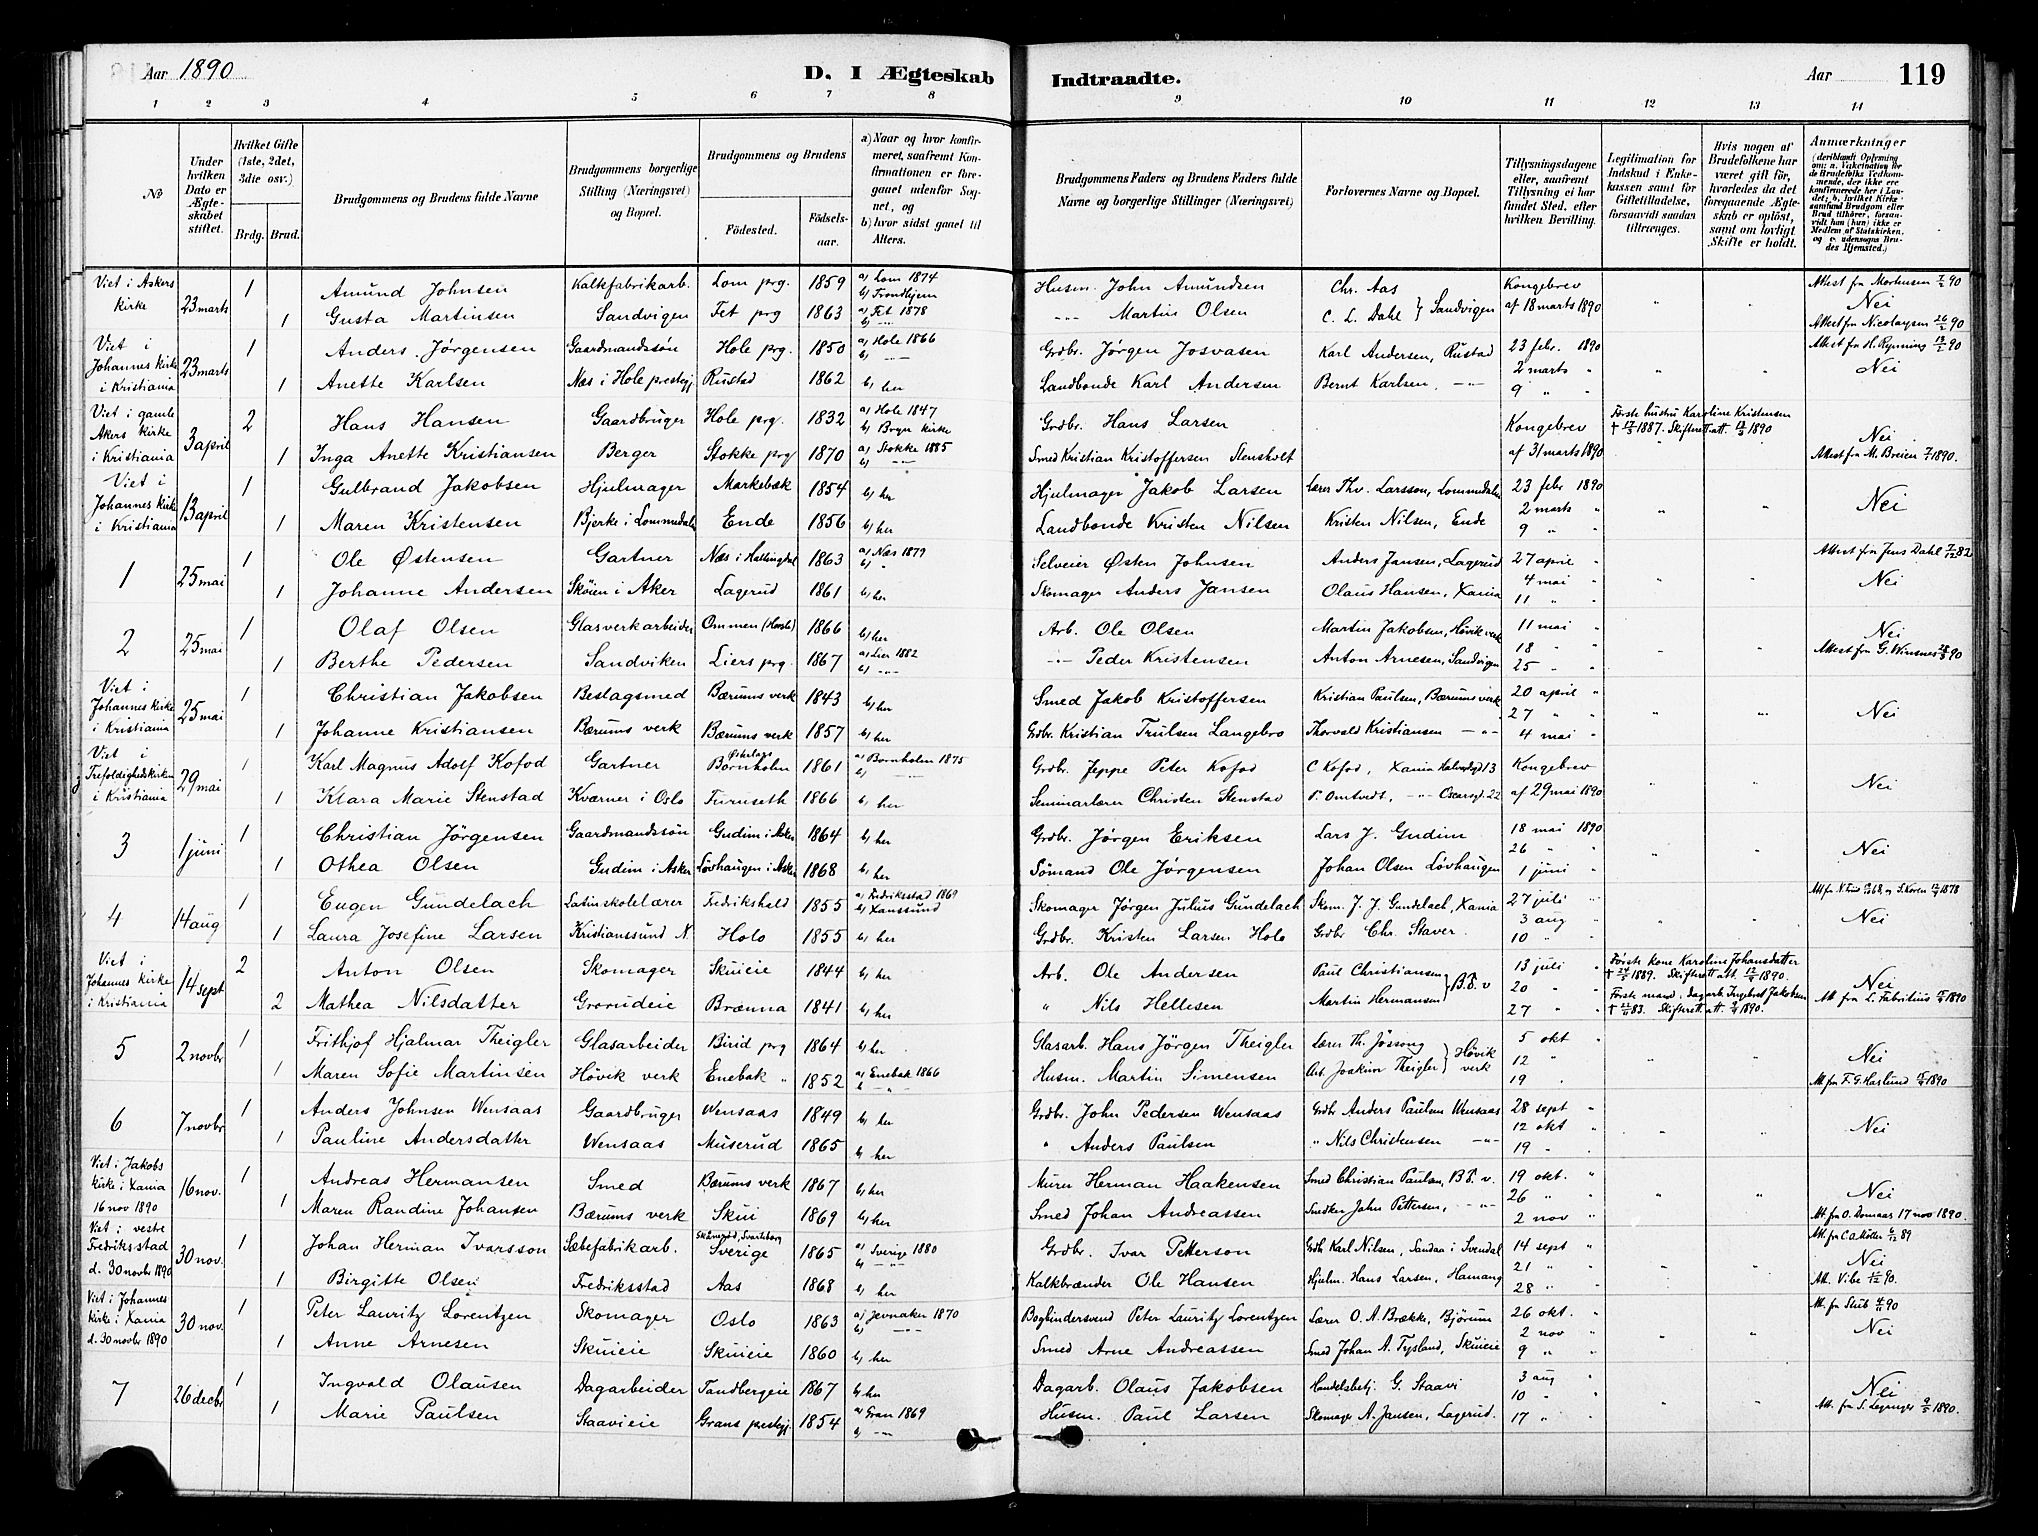 Aar 1890
D. I Ægteskab
Indtraadte.
Aar
119
1 2 3 4 5 6 7 8 9 10 11 12 13 14
No
Under hvilken Dato er Ægteskabet stiftet.
Hvilket Gifte (1ste, 2det, 3die osv.)
Brdg. Brud.
Brudgommens og Brudens fulde Navne
Brudgommens borgerlige Stilling (Næringsvei) og Bopæl.
Brudgommens og Brudens
Fødested.
Fødselsaar.
a) Naar og hvor konfirmeret, saafremt Konfirmationen er foregaaet udenfor Sognet, og
b) hvor sidst gaaet til Alters.
Brudgommens Faders og Brudens Faders fulde Navne og borgerlige Stillinger (Næringsvei)
Forlovernes Navne og Bopæl.
Tillysningsdagene eller, saafremt Tillysning ei har fundet Sted, efter hvilken Bevilling.
Legitimation for Indskud i Enkekassen samt for Giftetilladelse, forsaavidt saadan tiltrænges.
Hvis nogen af Brudefolkene har været gift før, hvorledes da det foregaaende Ægteskab er opløst, samt om lovligt Skifte er holdt.
Anmærkninger (deriblandt Oplysning om: a. Vakcination for de Brudefolks Vedkommende, der ikke ere konfirmerede her i Landet; b. hvilket Kirkesamfund Brudgom eller Brud tilhører, forsaavidt han (hun) ikke er Medlem af Statskirken, og c. udensogns Brudes Hjemsted.)
Viet i Askers kirke 23 marts 1 Amund Johnsen Kalkfabrikarb. Lom prg. 1859 a) Lom 1874 b) Trondhjem Husm. John Amundsen Chr. Aas Kongebrev " " Attest fra Mortensen 7/2 90
1 Gusta Martinsen Sandvigen Fet prg 1863 a) Fet 1878 b) -"- -"- Martin Olsen C. L. Dahl } Sandvigen af 18 marts 1890 Nei
Attest fra Nicolaysen 26/2 90
Viet i Johannes kirke i Kristiania 23 marts 1 Anders Jørgensen Gaardmandssøn Hole prg. 1850 a) Hole 1866 b) -"- Grdbr. Jørgen Josvasen Karl Andersen, Rustad 23 febr. 1890 Attest fra H. Rynning 13/2 90
1 Anette Karlsen Næs i Hole prestegj Rustad 1862 b) her Landbonde Karl Andersen Bernt Karlsen, -"- 2 marts " 9 " " Nei
Viet i gamle Akers kirke i Kristiania 3 april 2 Hans Hansen Gaardbruger Hole prg. 1832 a) Hole 1847 b) Bryn kirke Grdbr. Hans Larsen Kongebrev Første hustru Karoline Kristensen † 17/5 1887. Skifteretsatt. 1890
1 Inga Anette Kristiansen Berger Stokke prg 1870 a) Stokke 1885 b) -"- Smed Kristian Kristoffersen Stensholt af 31 marts 1890 Nei Attest fra M. Breien 7/1 1890.
Viet i Johannes kirke i Kristiania 13 april 1 Gulbrand Jakobsen Hjulmager Markebæk 1854 b) her Hjulmager Jakob Larsen Lærer Thv. Larsson, Lommedalen 23 febr 1890
1 Maren Kristensen Bjerke i Lommedalen Ende 1856 b) her Landbonde Kristen Nilsen Kristen Nilsen, Ende 2 marts " 9 " " Nei
1 25 mai 1 Ole Østensen Gartner Næs i Hallingdal 1863 a) Næs 1879 b) " Selveier Østen Johnsen Anders Jansen, Lagerud 27 april " Attest fra Jens Dahl 7/12 82
1 Johanne Andersen Skøien i Aker Lagerud 1861 b) her Skomager Anders Jansen Olaus Hansen, Xania 4 mai " 11 " " Nei
2 25 mai 1 Olaf Olsen Glasverkarbeider Ommen (Harsle) 1866 b) her Arb. Ole Olsen Martin Jakobsen, Høvik verk 11 mai " Nei
1 Berthe Pedersen Sandviken Liers prg. 1867 a) Lier 1882 b) -"- -"- Peder Kristensen Anton Arnesen, Sandvigen 18 " 25 " Attest fra G. Winsnes 28/3 90
Viet i Johannes kirke i Kristiania 25 mai 1 Christian Jakobsen Beslagsmed Bærums verk 1843 b) her Smed Jakob Kristoffersen Kristian Paulsen, Bærums verk 20 april "
1 Johanne Kristiansen Bærums verk Bærums verk 1857 b) her Grdbr. Kristian Trulsen Langebro Thorvald Kristiansen -"- 27 " " 4 mai " Nei
Viet i Trefoldighedskirken i Kristiania 29 mai 1 Karl Magnus Adolf Kofod Gartner Østerlars Bornholm 1861 a) Bornholm 1875 b) -"- Grdbr. Jeppe Peter Kofod C Kofod, Xania 13 Kongebrev
1 Klara Marie Stenstad Kværner i Oslo Furuseth 1866 b) her Seminarlærer Christen Stenstad T. Omtvedt, -"- Oscarsgd. 22 af 29 mai 1890 Nei
3 1 juni 1 Christian Jørgensen Gaardmandssøn Gudim i Asker 1864 b) her Grdbr. Jørgen Eriksen Lars J. Gudim 18 mai 1890
1 Othea Olsen Gudim i Asker Løvhaugen i Asker 1868 b) her Sømand Ole Jørgensen Johan Olsen Løvhaugen 26 " " 1 juni " Nei
4 14 aug 1 Eugen Gundelach Latinskolelærer Fredrikshald 1855 a) Fredriksstad 1869 b) Xanssund Skomager Jørgen Julius Gundelach Skom. J. J. Gundelach, Xania 27 juli " S. Koren 1878
1 Laura Josefine Larsen Kristianssund N. Holo 1855 b) her Grdbr. Kristen Larsen Holo Grdbr Chr. Staver. 3 aug " 10 " " Nei
Viet i Johannes kirke i Kristiania 14 sept 2 Anton Olsen Skomager Skuieie 1844 b) her Arb. Ole Andersen Paul Christiansen } B.V. v 13 juli " Første kone Karoline Johansdatter † 1889. Skifterett. att. 1890. Nei
2 Mathea Nilsdatter Grorudeie Brænna 1841 b) her " Nils Hellesen Martin Hermansen 20 " " 27 " " Første mand, dagarb. Ingebret Jakobsen † 83. Skifterett. att. 1890. Att fra L. Fabritius 1890
5 2 novbr 1 Frithjof Hjalmar Theigler Glasarbeider Birid prg 1864 b) her Glasarb. Hans Jørgen Theigler Lærer Th. Jøssong } Høvik verk 5 okt "
1 Maren Sofie Martinsen Høvik verk Enebak " 1852 a) Enebak 1866 b) -"- Husm. Martin Simensen Arb. Joakim Theigler 12 " 19 " Nei Att fra F. G. Harlund 1890
6 7 novbr 1 Anders Johnsen Wensaas Gaardbruger Wensaas 1849 b) her Grdbr. John Pedersen Wensaas Grdbr Anders Paulsen Wensaas 28 sept "
1 Pauline Andersdatter Wensaas Muserud 1865 b) her " Anders Paulsen " Nils Christensen -"- 12 okt " 19 " Nei
Viet i Jakobs kirke i Xania 16 nov 1890 16 nov. 1 Andreas Hermansen Smed Bærums verk 1867 b) her Murer Herman Haakensen Smed Christian Paulsen, B.V. v. 19 okt. "
1 Maren Randine Johansen Bærums verk Skui 1869 b) her Smed Johan Andreassen Snedker John Pettersen, -"- 26 " " 2 nov " Nei Att. fra O. Domaas 17 nov 1890.
Viet i vestre Fredriksstad d. 30 novbr 1890 30 nov. 1 Johan Herman Ivarsson Sæbefabrikarb. Sverige 1865 a) Sverige 1880 b) -"- Grdbr. Ivar Petterson Grdb Karl Nilsen, Sandan i Svendal 14 sept " Att. fra C. A. Møller 89
1 Birgitte Olsen Fredriksstad Aas 1868 b) her Kalkbrænder Ole Hansen Hjulm. Hans Larsen, Hamang 21 " 28 " Nei Att. Vibe 90.
Viet i Johannes kirke i Xania d. 30 novbr 1890 30 nov. 1 Peter Lauritz Lorentzen Skomager Oslo 1863 a) Jevnaker 1870 b) -"- Bogbindersvend Peter Lauritz Lorentzen Lærer O. A. Brække, Bjørum 26 okt. " Att. fra Stub 4/11 90
1 Anne Arnesen Skuieie Skuieie 1860 b) her Smed Arne Andreassen Smed Johan A. Tysland, Skuieie 2 nov " 9 " " Nei
7 26 decbr 1 Ingvald Olausen Dagarbeider Tandbergeie 1867 b) her Dagarb. Olaus Jakobsen Handelsbetj. G. Staavi 3 aug " Nei
1 Marie Paulsen Staavieie Grans prestegj. 1854 a) Gran 1869 b) -"- Husm. Paul Larsen Skomager A. Jansen, Lagerud. 10 " 17 " Att. fra S. 1890.